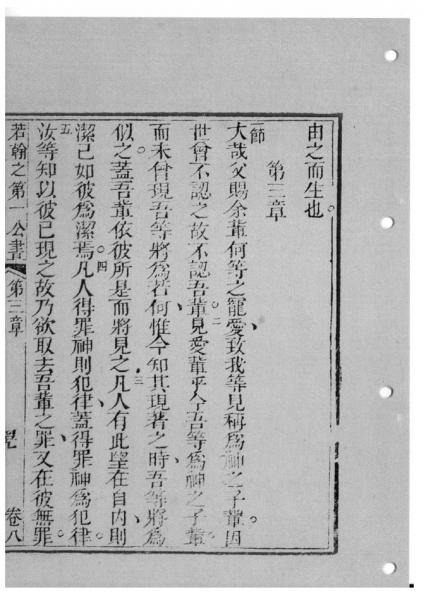 由之而生也。
第三章
一節
大哉父賜余輩何等之寵愛、致我等見稱為神之子輩。因
世曾不認之、故不認吾輩。二見愛輩乎、今吾等為神之子輩。
而未曾現吾等將為若何、惟今知其現著之時、吾等將為
似之。蓋吾輩依彼所是而將見之。三凡人有此望在自內、則
潔己如彼為潔焉。四凡人得罪神則犯律、蓋得罪神為犯律。
五汝等知以彼已現之故、乃欲取去吾輩之罪、又在彼無罪。
若翰之第一公書 第三章 卷八